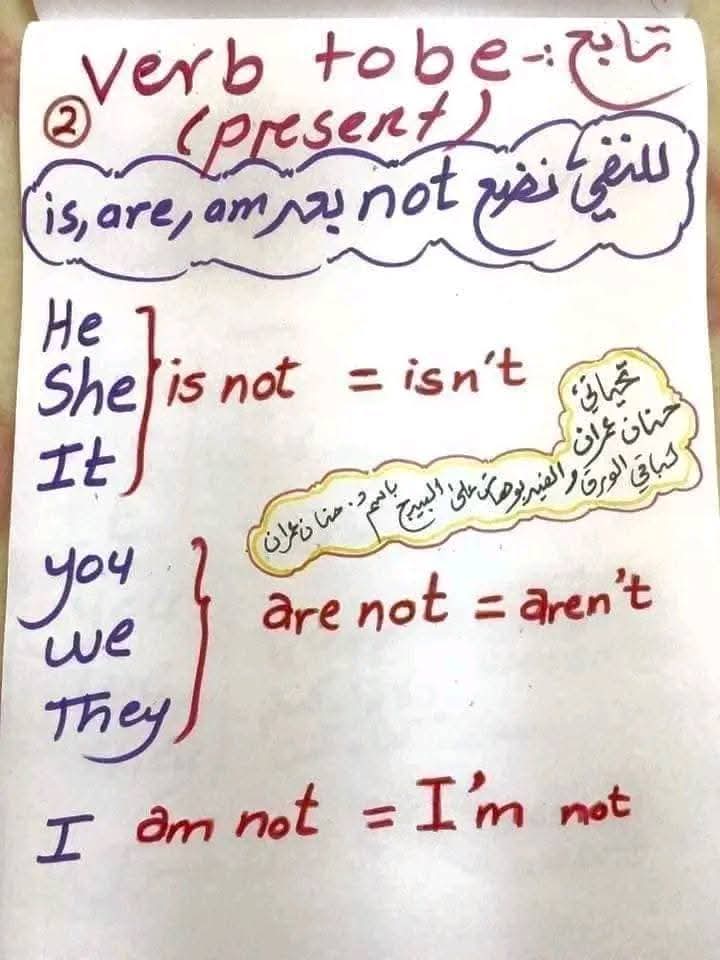 تابع :- verb to be
② (present)
للنفي نضع not بعد is, are, am
He
She
It
is not = isn't
تحياتي
حنان عمران
لباقي الورق و الفيديوهات على البيدج باسم د. حنان عمران
you
we
They
are not = aren't
I am not = I'm not